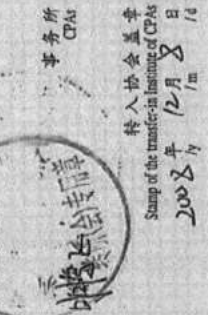 事务所
CPAs
转入协会盖章
Stamp of the transfer-in Institute of CPAs
2008年 12月 8日
/y /m /d